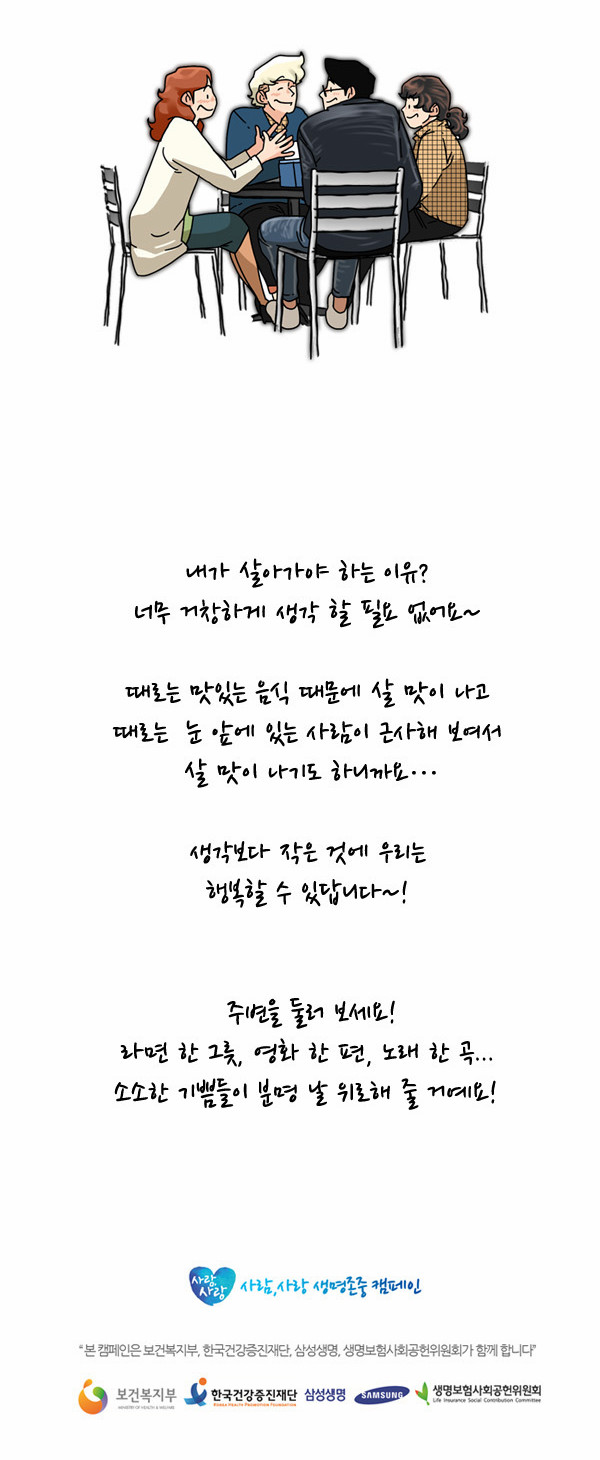 내가 살아가야 하는 이유?
너무 거창하게 생각 할 필요 없어요~
때로는 맛있는 음식 때문에 살 맛이 나고
때로는 눈 앞에 있는 사람이 근사해 보여서
살 맛이 나기도 하니까요...
생각보다 작은 것에 우리는
행복할 수 있답니다~!
주변을 둘러 보세요!
라면 한 그릇, 영화 한 편, 노래 한 곡...
소소한 기쁨들이 분명 날 위로해 줄 거예요!
사람,사랑 사람,사랑 생명존중 캠페인
“본 캠페인은 보건복지부, 한국건강증진재단, 삼성생명, 생명보험사회공헌위원회가 함께 합니다”
보건복지부 한국건강증진재단 삼성생명 SAMSUNG 생명보험사회공헌위원회
MINISTRY OF HEALTH & WELFARE KOREA HEALTH PROMOTION FOUNDATION Life Insurance Social Contribution Committee